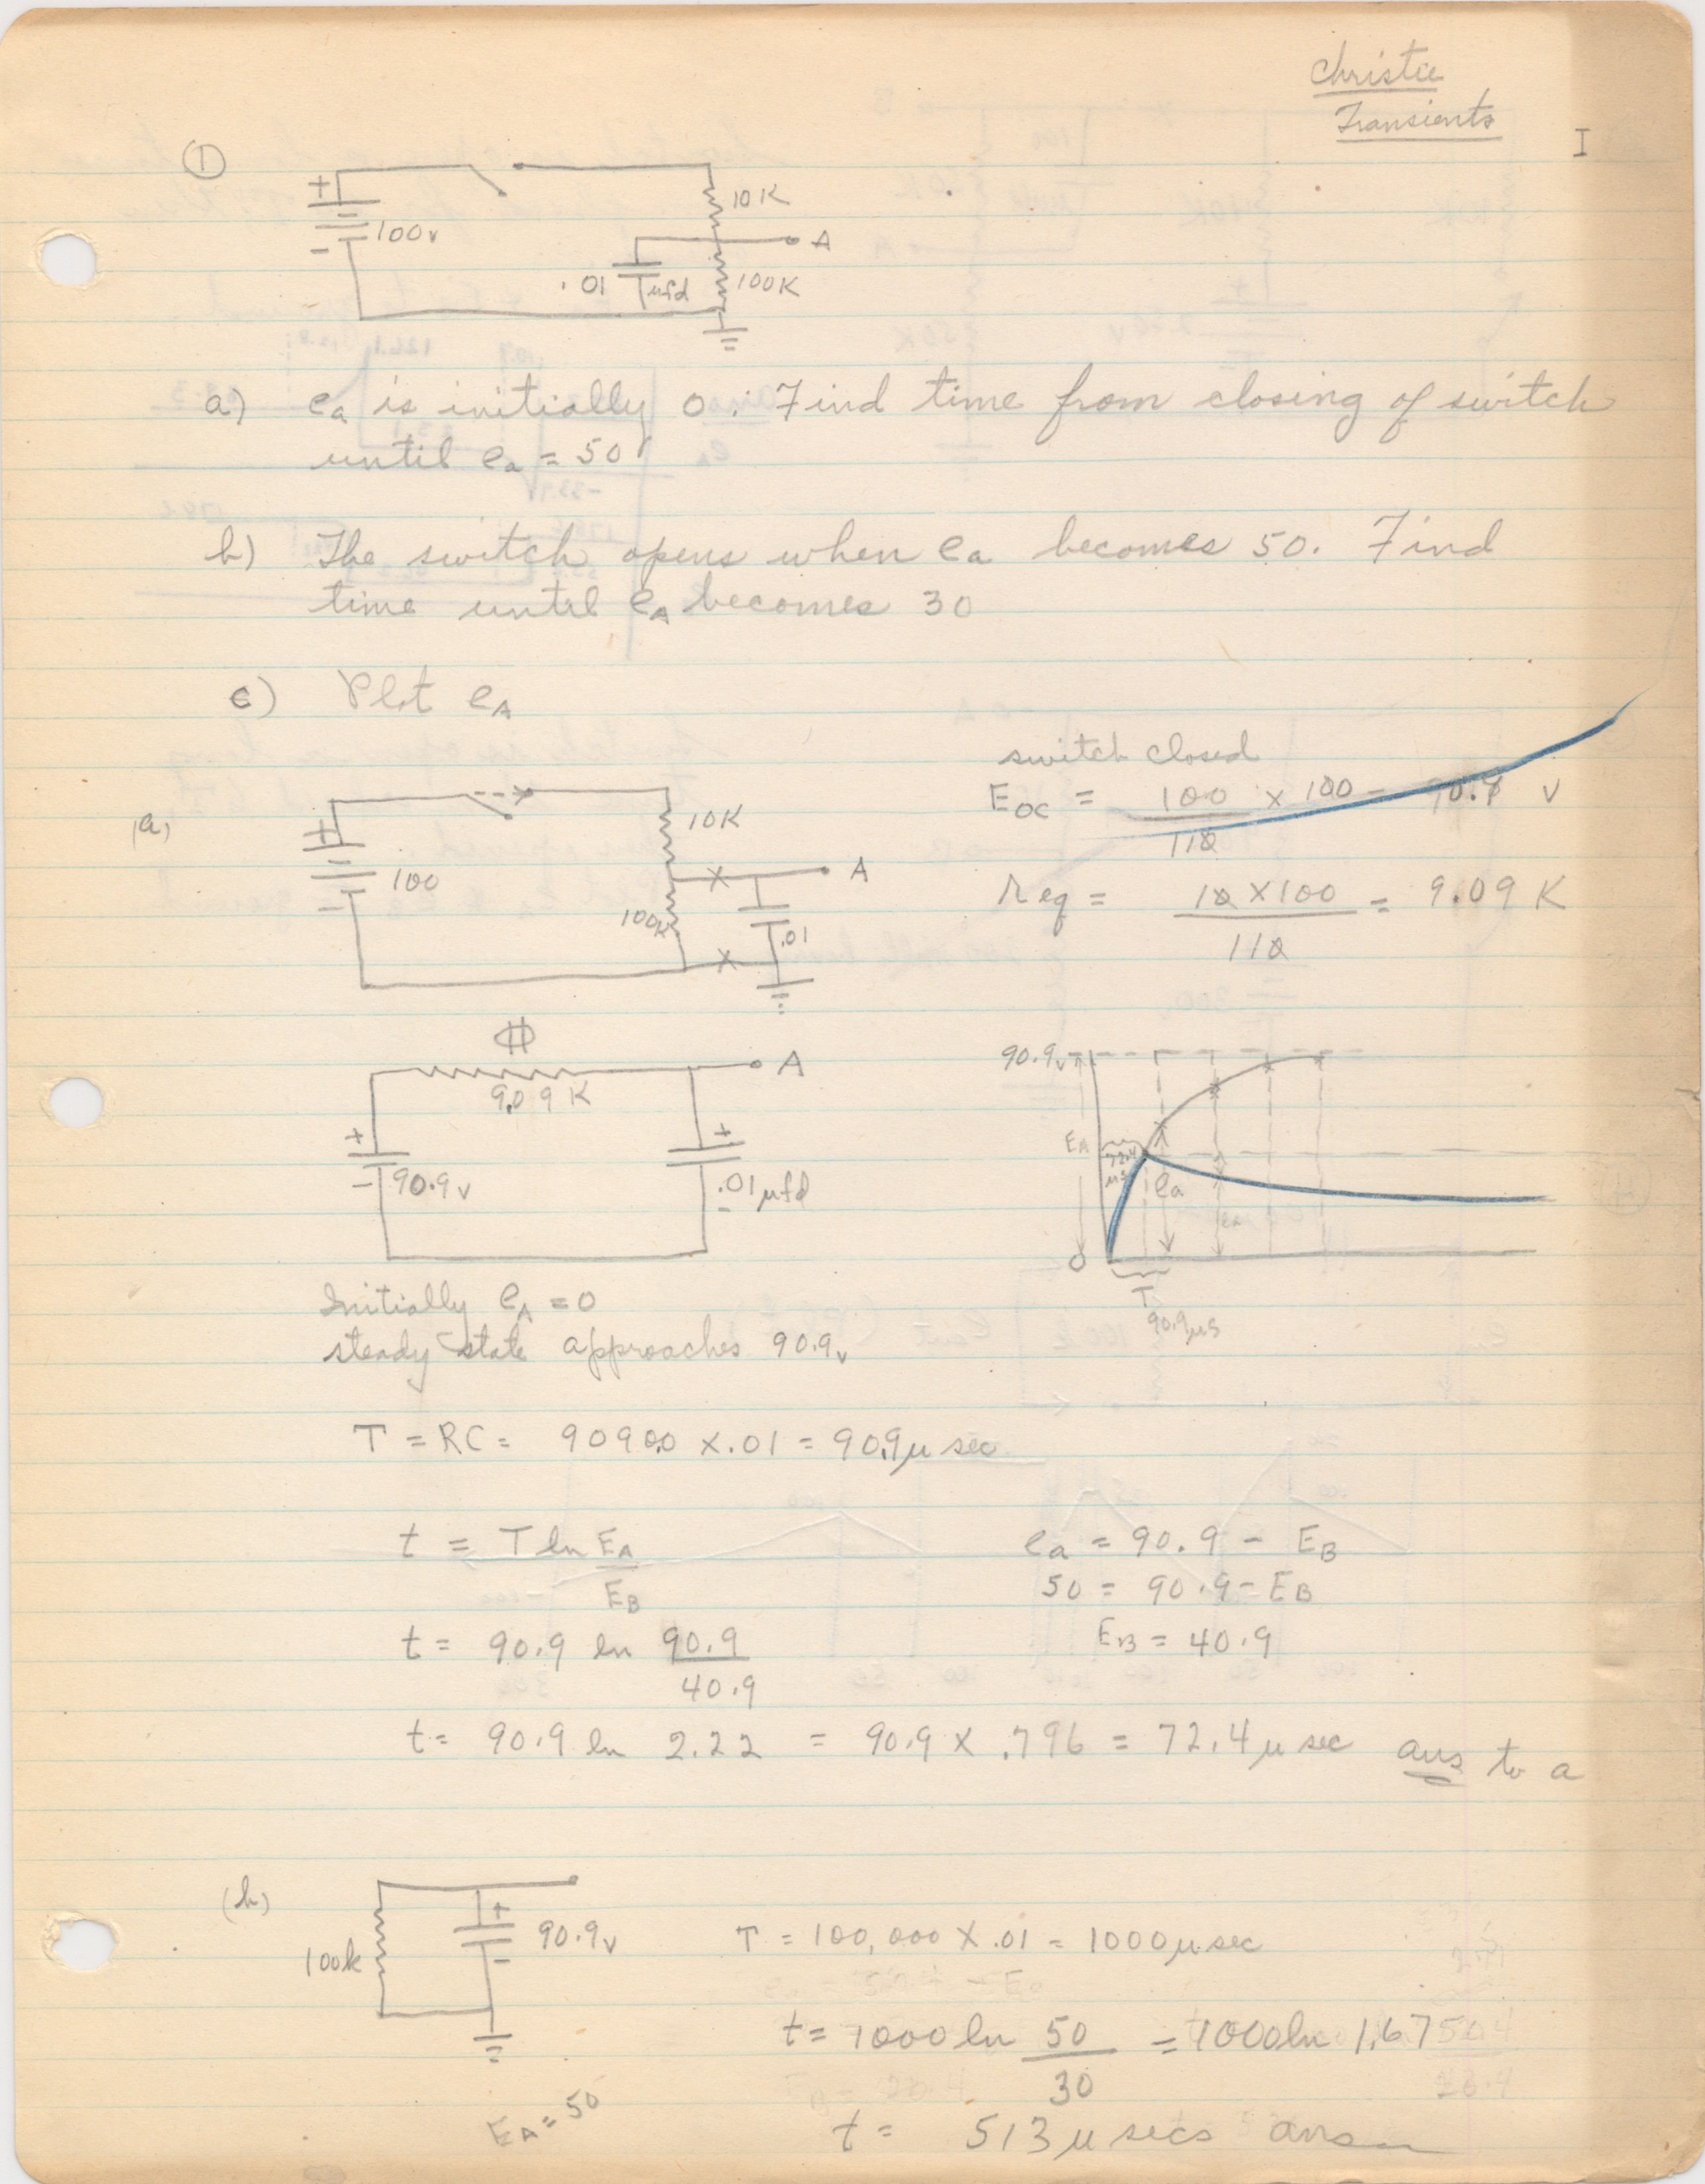 Christie
Transients
I
①
+
10K
100v
A
-
.01 µfd
100K
a) ea is initially 0. Find time from closing of switch
until ea = 50
b) The switch opens when ea becomes 50. Find
time until eA becomes 30
c) Plot eA
switch closed
EOC = 100/110 × 100 = 90.9 v
(a)
+
10K
100
A
-
100K
.01
req = 10 × 100/110 = 9.09 K
A
9.09 K
+
+
90.9v
-
.01 µfd
-
90.9v
EA
72.4
µs
ea
ea
0
T
90.9µs
Initially eA = 0
steady state approaches 90.9v
T = RC = 9090.0 X .01 = 90.9µ sec
t = T ln EA/EB
ea = 90.9 - EB
50 = 90.9 - EB
t = 90.9 ln 90.9/40.9
EB = 40.9
t = 90.9 ln 2.22 = 90.9 X .796 = 72.4 µ sec ans to a
(b)
+
90.9v
-
100k
T = 100,000 X .01 = 1000µ sec
t = 1000 ln 50/30 = 1000 ln 1.67
EA = 50
t = 513 µ secs ans